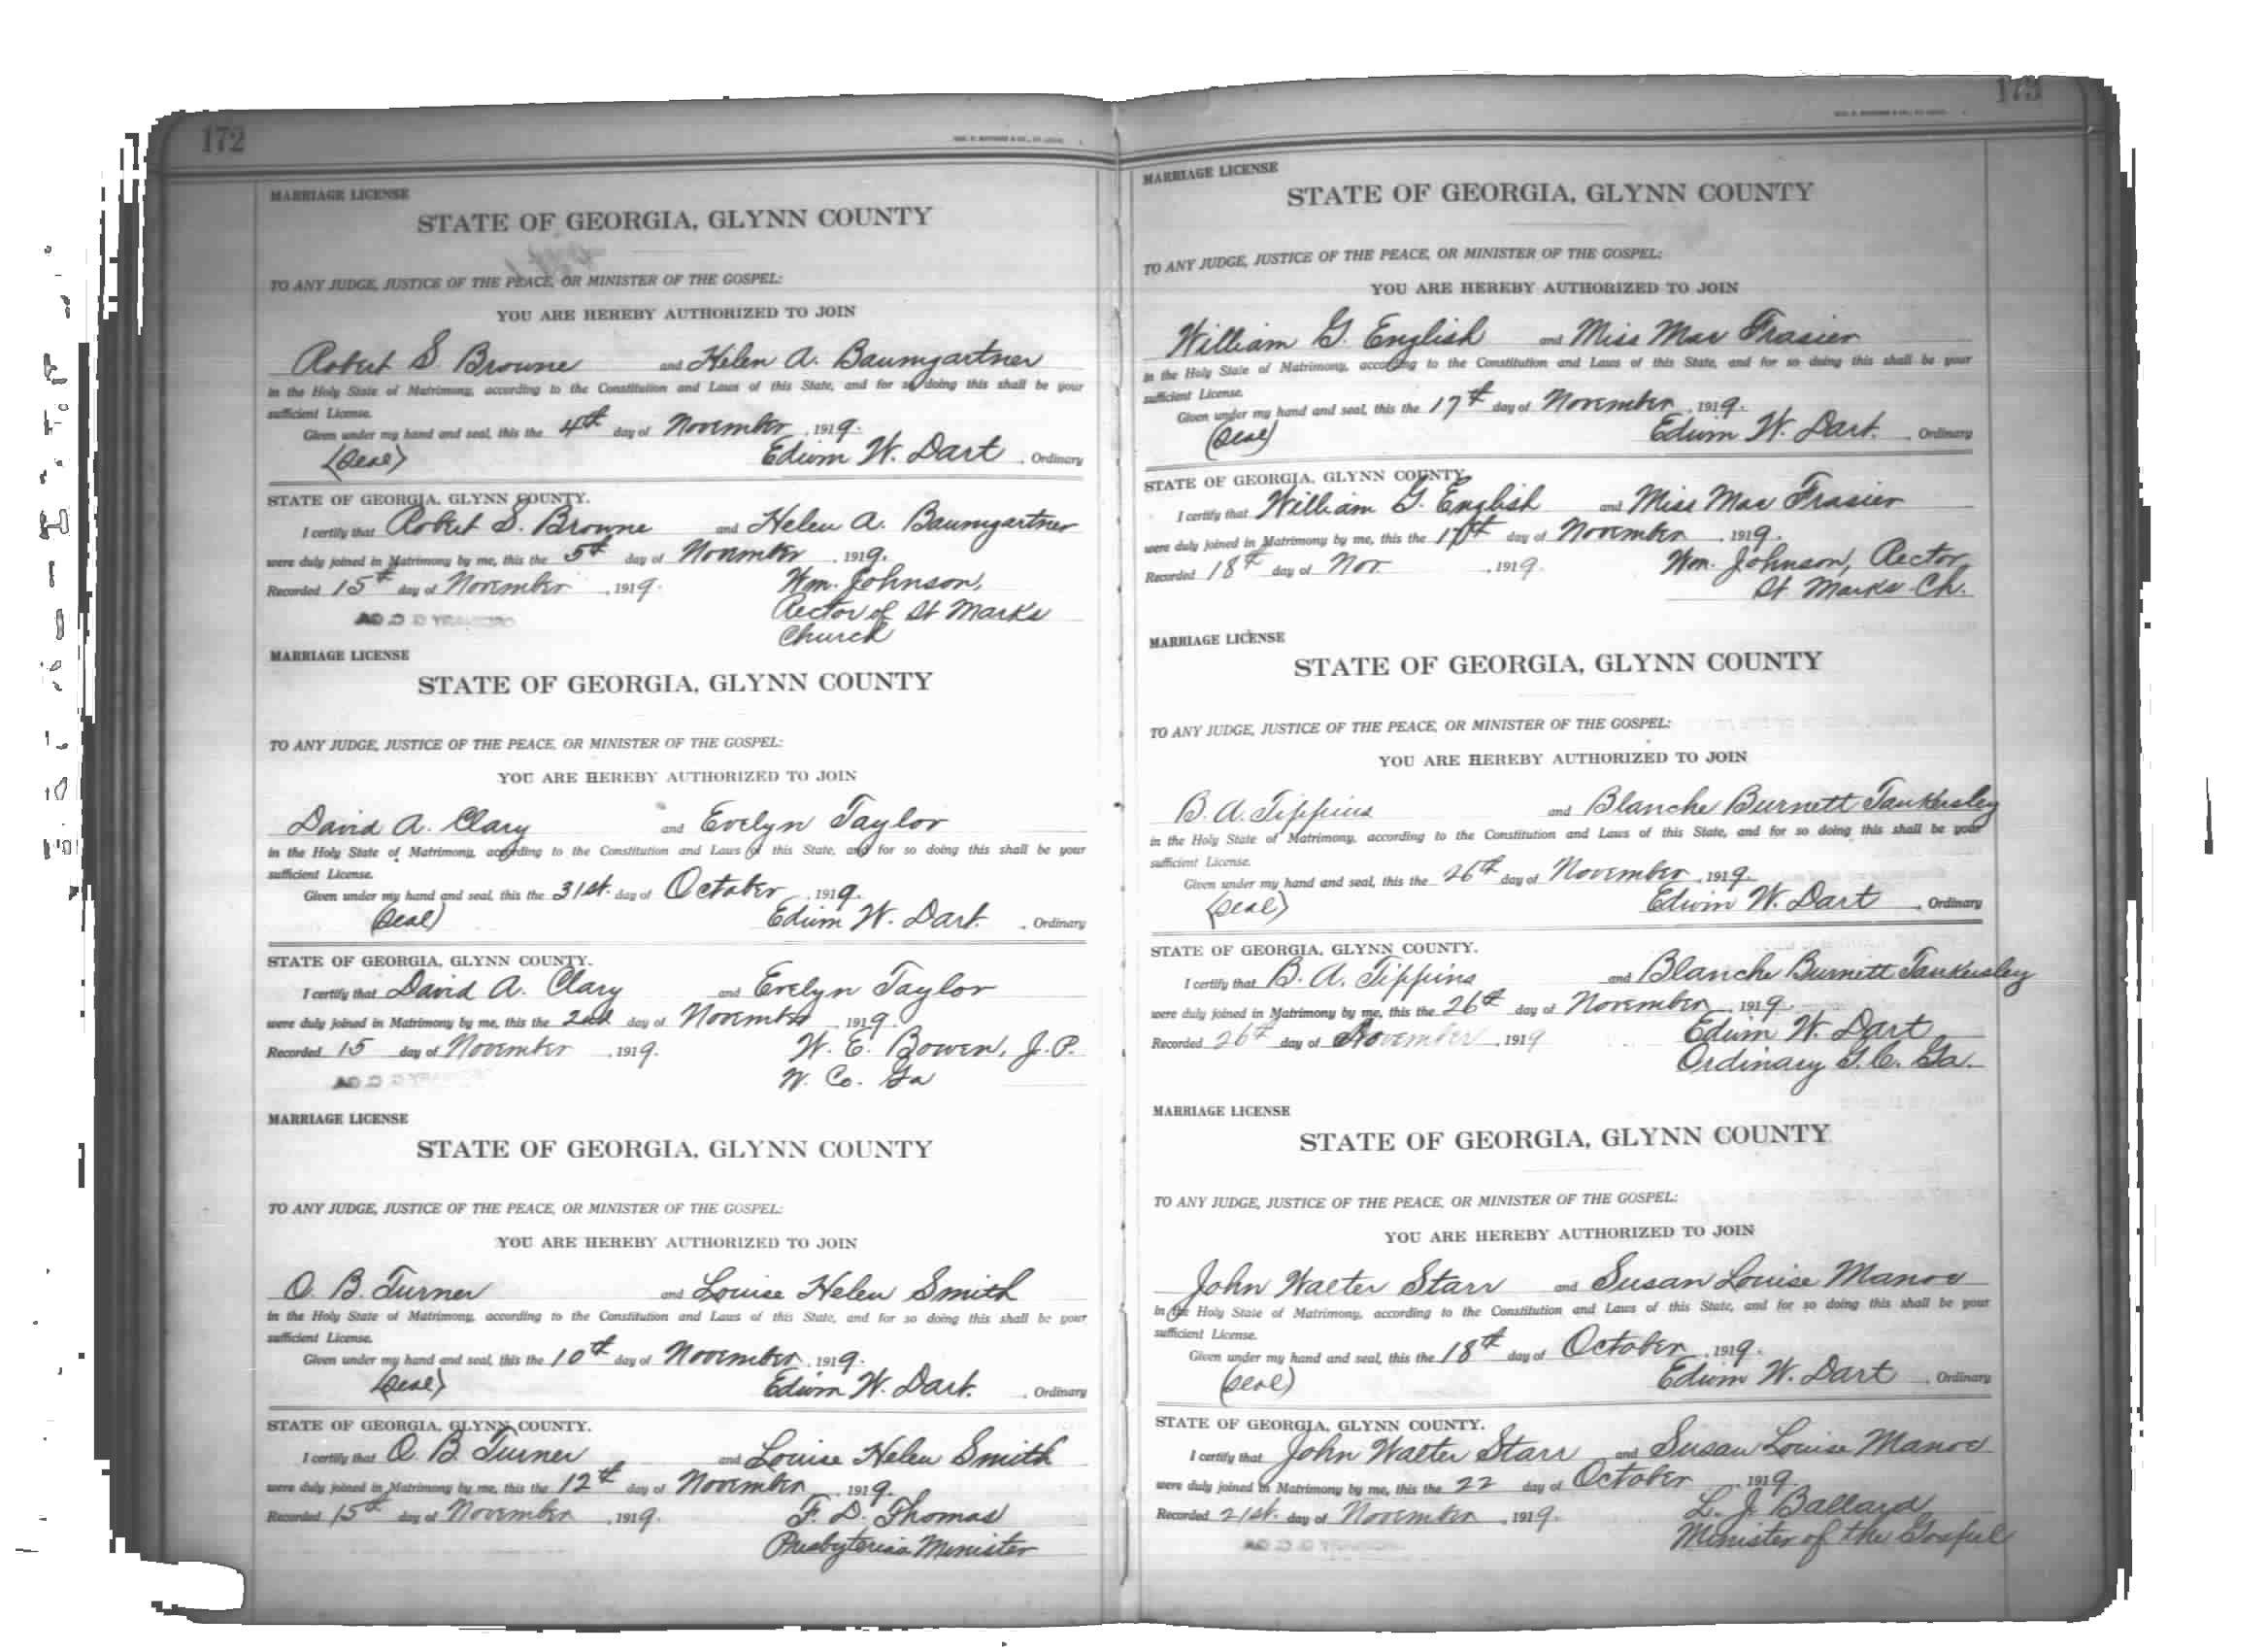 172
MARRIAGE LICENSE
STATE OF GEORGIA, GLYNN COUNTY
TO ANY JUDGE, JUSTICE OF THE PEACE, OR MINISTER OF THE GOSPEL:
YOU ARE HEREBY AUTHORIZED TO JOIN
Robert S. Browne and Helen A. Baumgartner
in the Holy State of Matrimony, according to the Constitution and Laws of this State, and for so doing this shall be your
sufficient License.
Given under my hand and seal, this the 4th day of November, 1919.
(Seal) Edwin W. Dart, Ordinary
STATE OF GEORGIA, GLYNN COUNTY.
I certify that Robert S. Browne and Helen A. Baumgartner
were duly joined in Matrimony by me, this the 5th day of November, 1919.
Recorded 15th day of November, 1919. Wm. Johnson,
Rector of St Marks
Church
MARRIAGE LICENSE
STATE OF GEORGIA, GLYNN COUNTY
TO ANY JUDGE, JUSTICE OF THE PEACE, OR MINISTER OF THE GOSPEL:
YOU ARE HEREBY AUTHORIZED TO JOIN
David A. Clary and Evelyn Taylor
in the Holy State of Matrimony, according to the Constitution and Laws of this State, and for so doing this shall be your
sufficient License.
Given under my hand and seal, this the 31st. day of October, 1919.
(Seal) Edwin W. Dart. , Ordinary
STATE OF GEORGIA, GLYNN COUNTY.
I certify that David A. Clary and Evelyn Taylor
were duly joined in Matrimony by me, this the 2nd day of November, 1919.
Recorded 15 day of November, 1919. W. E. Bowen, J.P.
W. Co. Ga
MARRIAGE LICENSE
STATE OF GEORGIA, GLYNN COUNTY
TO ANY JUDGE, JUSTICE OF THE PEACE, OR MINISTER OF THE GOSPEL:
YOU ARE HEREBY AUTHORIZED TO JOIN
O. B. Turner and Louise Helen Smith
in the Holy State of Matrimony, according to the Constitution and Laws of this State, and for so doing this shall be your
sufficient License.
Given under my hand and seal, this the 10th day of November, 1919.
(Seal) Edwin W. Dart. , Ordinary
STATE OF GEORGIA, GLYNN COUNTY.
I certify that O. B. Turner and Louise Helen Smith
were duly joined in Matrimony by me, this the 12th day of November, 1919.
Recorded 15th day of November, 1919. F. D. Thomas
Presbyterian Minister
173
MARRIAGE LICENSE
STATE OF GEORGIA, GLYNN COUNTY
TO ANY JUDGE, JUSTICE OF THE PEACE, OR MINISTER OF THE GOSPEL:
YOU ARE HEREBY AUTHORIZED TO JOIN
William G. English and Miss Mae Frasier
in the Holy State of Matrimony, according to the Constitution and Laws of this State, and for so doing this shall be your
sufficient License.
Given under my hand and seal, this the 17th day of November, 1919.
(Seal) Edwin W. Dart. , Ordinary
STATE OF GEORGIA, GLYNN COUNTY.
I certify that William G. English and Miss Mae Frasier
were duly joined in Matrimony by me, this the 17th day of November, 1919.
Recorded 18th day of Nov. , 1919. Wm. Johnson, Rector
St Marks Ch.
MARRIAGE LICENSE
STATE OF GEORGIA, GLYNN COUNTY
TO ANY JUDGE, JUSTICE OF THE PEACE, OR MINISTER OF THE GOSPEL:
YOU ARE HEREBY AUTHORIZED TO JOIN
B. A. Tippins and Blanche Burnett Tankersley
in the Holy State of Matrimony, according to the Constitution and Laws of this State, and for so doing this shall be your
sufficient License.
Given under my hand and seal, this the 26th day of November, 1919.
(Seal) Edwin W. Dart, Ordinary
STATE OF GEORGIA, GLYNN COUNTY.
I certify that B. A. Tippins and Blanche Burnett Tankersley
were duly joined in Matrimony by me, this the 26th day of November, 1919.
Recorded 26th day of November, 1919 Edwin W. Dart
Ordinary G. C. Ga.
MARRIAGE LICENSE
STATE OF GEORGIA, GLYNN COUNTY
TO ANY JUDGE, JUSTICE OF THE PEACE, OR MINISTER OF THE GOSPEL:
YOU ARE HEREBY AUTHORIZED TO JOIN
John Walter Starr and Susan Louise Manoe
in the Holy State of Matrimony, according to the Constitution and Laws of this State, and for so doing this shall be your
sufficient License.
Given under my hand and seal, this the 18th day of October, 1919.
(Seal) Edwin W. Dart, Ordinary
STATE OF GEORGIA, GLYNN COUNTY.
I certify that John Walter Starr and Susan Louise Manoe
were duly joined in Matrimony by me, this the 22 day of October, 1919.
Recorded 21st. day of November, 1919. L. J. Ballard
Minister of the Gospel